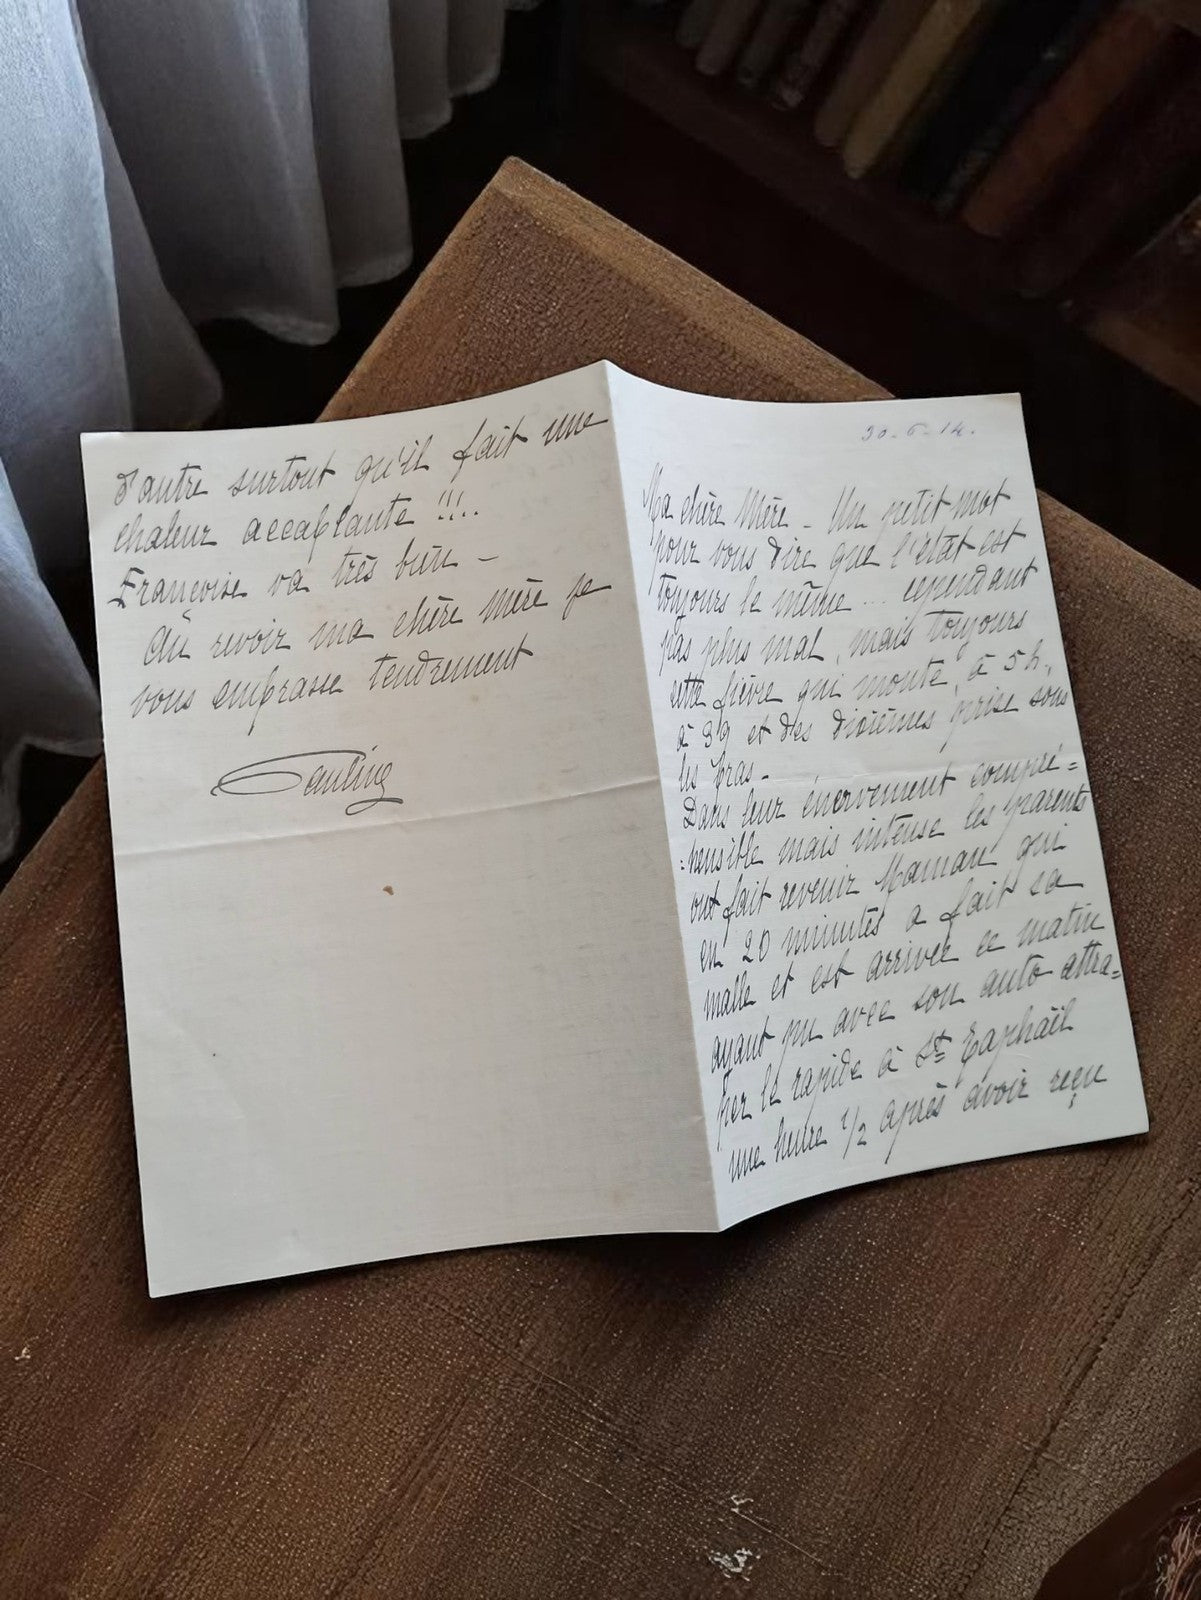 30-6-14.
Ma chère Mère - Un petit mot
pour vous dire que l'état est
toujours le même ... cependant
pas plus mal, mais toujours
cette fièvre qui monte, à 5 h.,
à 39 et des dixièmes prise sous
les bras -
Dans leur énervement compré=
=hensible mais intense les parents
ont fait revenir Maman qui
en 20 minutes a fait sa
malle et est arrivée ce matin
ayant pu avec son auto attra=
per le rapide à St Raphaël
une heure 1/2 après avoir reçu
d'autre surtout qu'il fait une
chaleur accablante !!!.
Françoise va très bien -
Au revoir ma chère Mère je
vous embrasse tendrement
Pauline